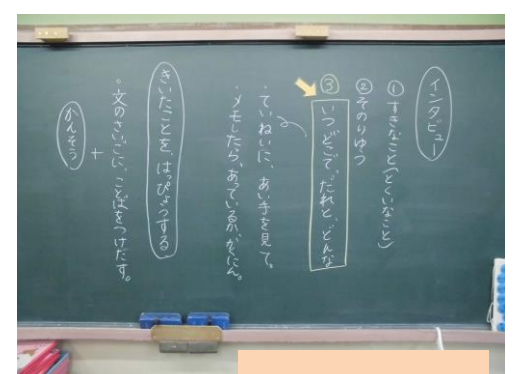 インタビュー
①すきなこと(とくいなこと)
②そのりゆう
③いつ、どこで、だれと、どんな
・ていねいに、あい手を見て。
・メモしたら、あっているか、かくにん。
きいたことを、はっぴょうする
・文のさいごに、ことばをつけたす。
+
かんそう